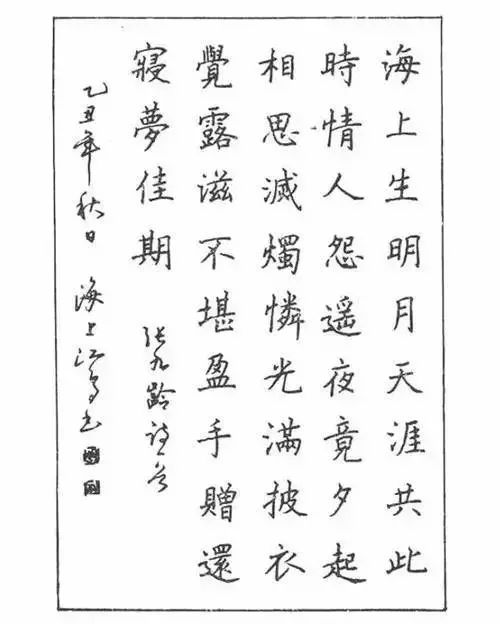 海上生明月天涯共此
時情人怨遥夜竟夕起
相思滅燭憐光滿披衣
覺露滋不堪盈手贈還
寢夢佳期
張九齡詩一首
乙丑年秋日 海上江鳥書